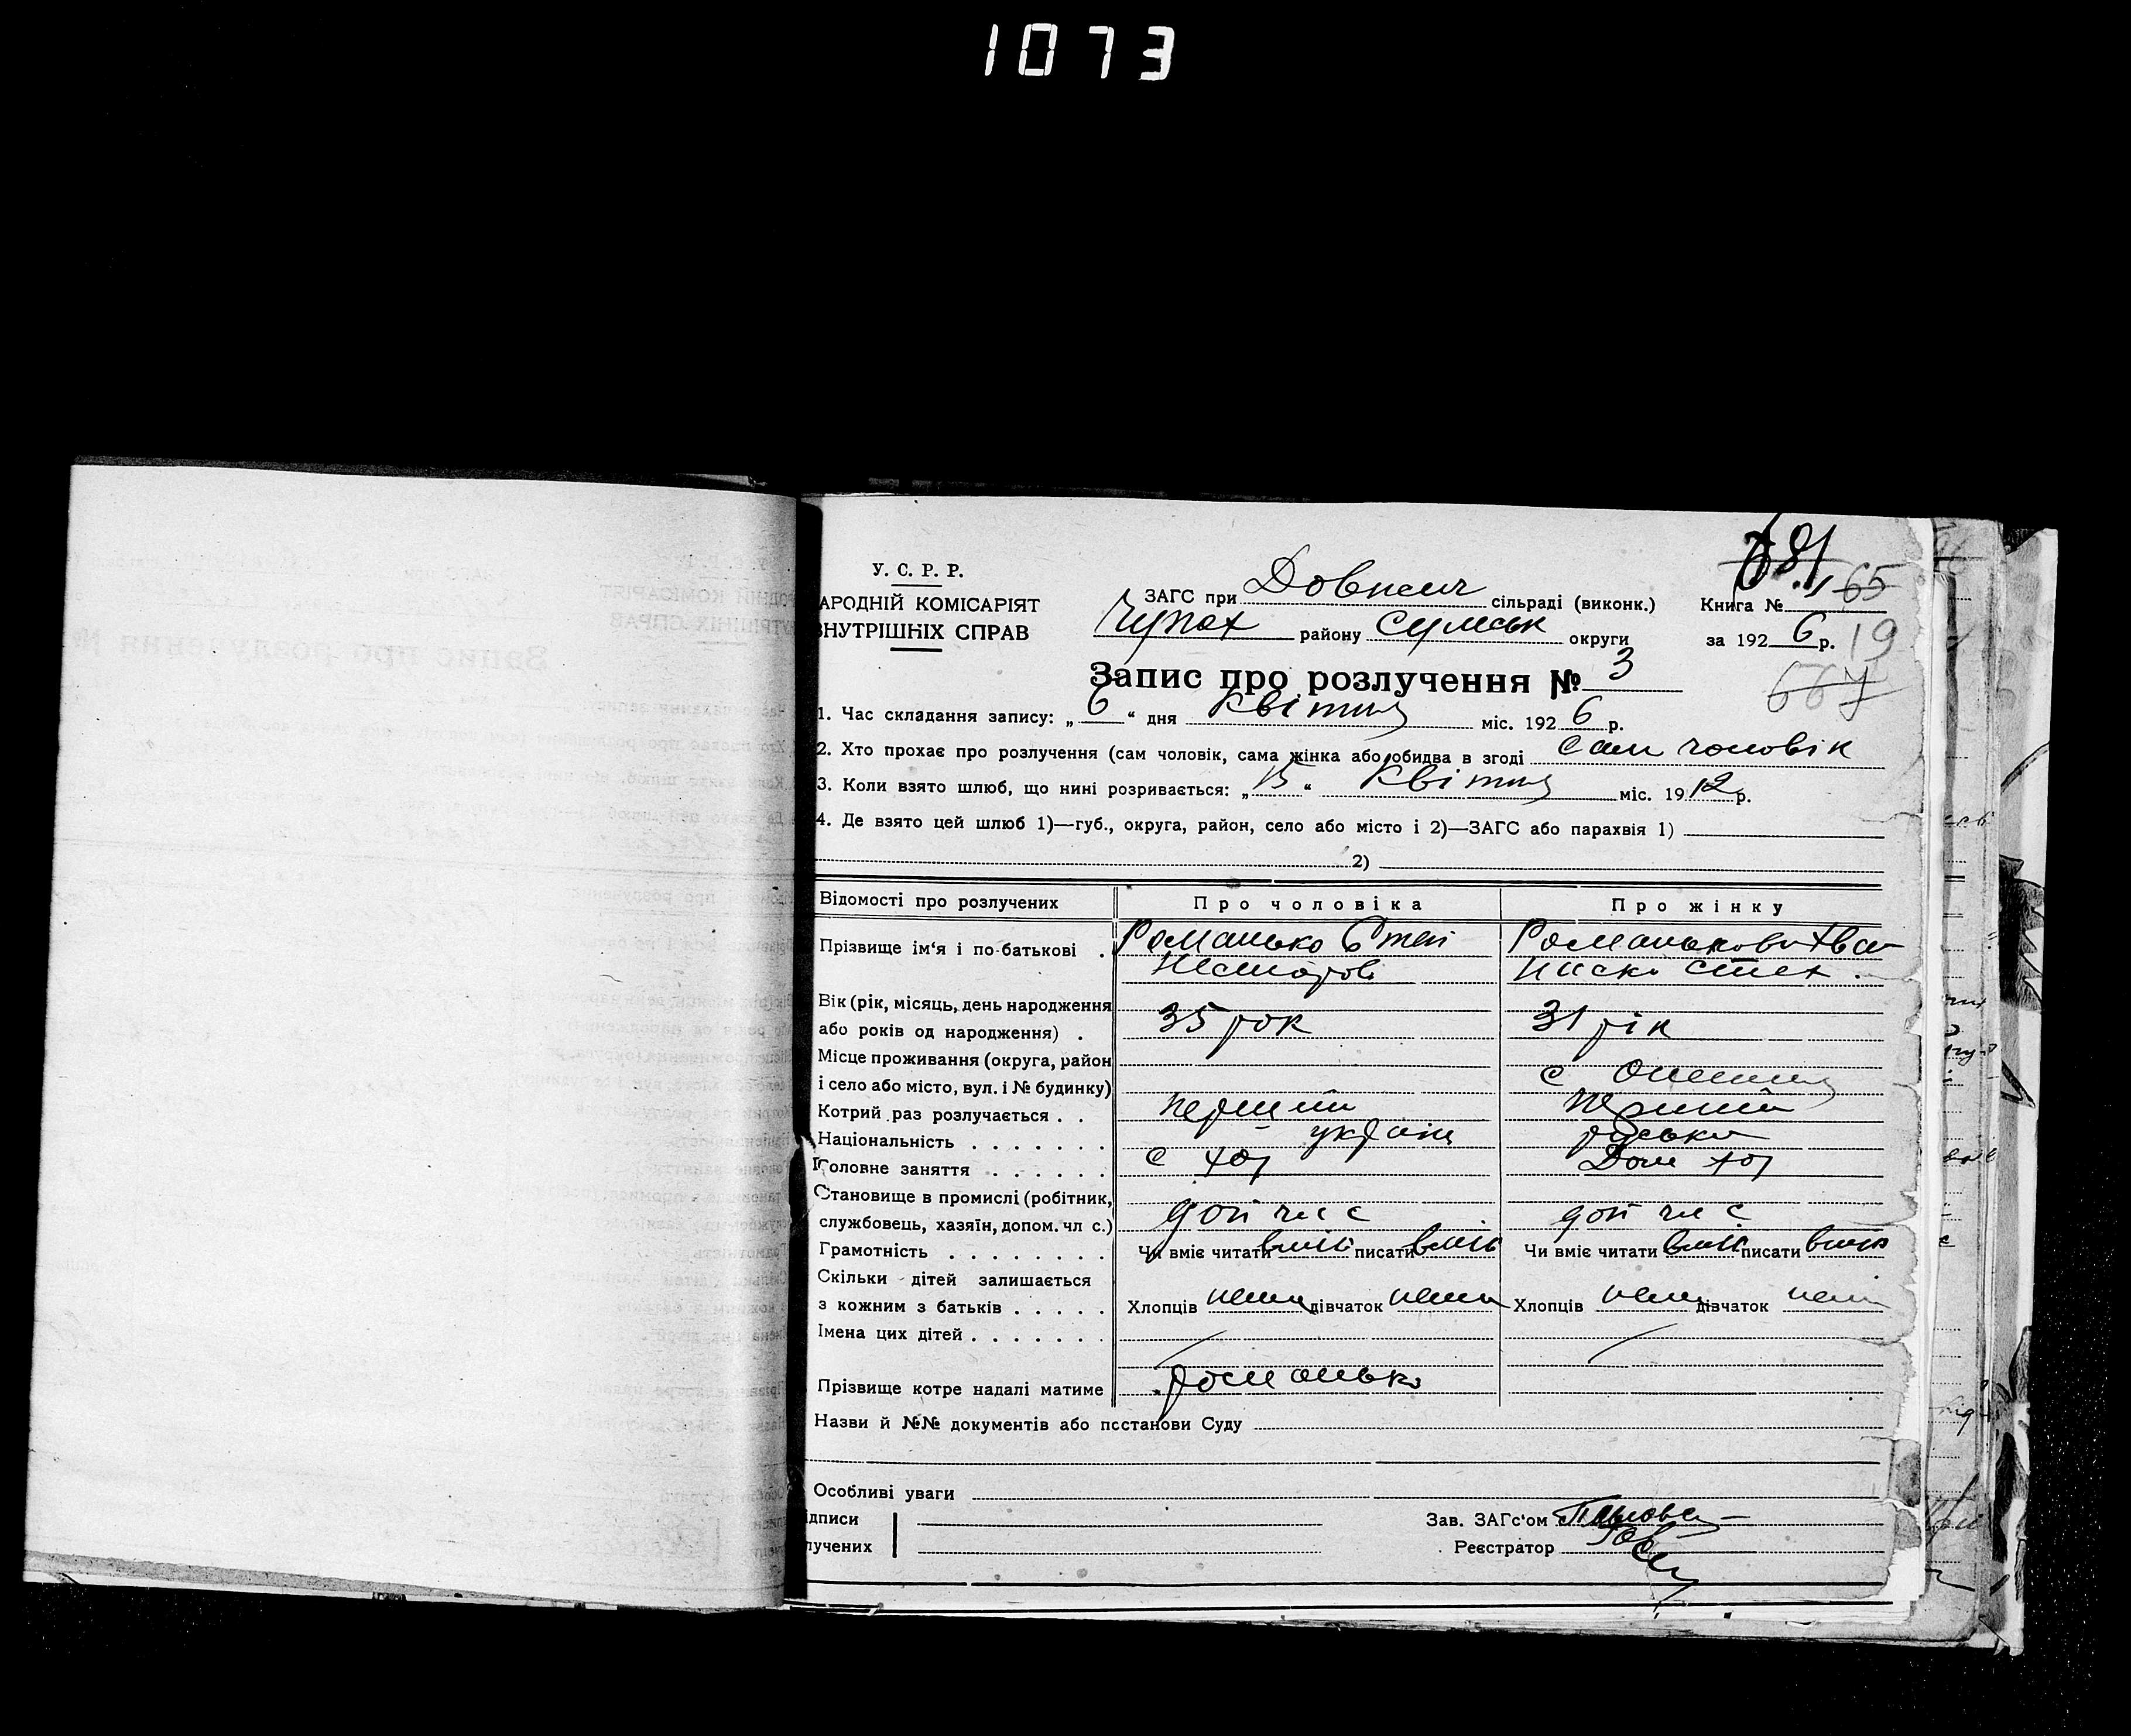 1073
681
У. С. Р. Р.
АРОДНІЙ КОМІСАРІЯТ
ВНУТРІШНІХ СПРАВ
ЗАГС при сільраді (виконк.)
Чупах району Сумськ округи
Книга № 1 65
за 1926 р. 19
667
Запис про розлучення № 3
1. Час складання запису: „6“ дня Квітня міс. 1926 р.
2. Хто прохає про розлучення (сам чоловік, сама жінка або обидва в згоді сам чоловік
3. Коли взято шлюб, що нині розривається: „15“ Квітня міс. 1912 р.
4. Де взято цей шлюб 1)—губ., округа, район, село або місто і 2)—ЗАГС або парахвія 1)
2)
Відомості про розлучених Про чоловіка Про жінку
Прізвище ім‘я і по-батькові . Романько Романькова
Вік (рік, місяць, день народження
або років од народження) . 35 рок 31 рік
Місце проживання (округа, район
і село або місто, вул. і № будинку) с
Котрий раз розлучається . . перший перший
Національність . . . . . . україн руська
Головне заняття . . . . . . с
Становище в промислі (робітник,
службовець, хазяїн, допом. чл с.) доп чл с доп чл с
Грамотність . . . . . . . . Чи вміє читати вміє писати вміє Чи вміє читати вміє писати вміє
Скільки дітей залишається
з кожним з батьків . . . . . Хлопців нема дівчаток нема Хлопців нема дівчаток нема
Імена цих дітей . . . . . . .
Прізвище котре надалі матиме Романько
Назви й №№ документів або постанови Суду
Особливі уваги
ідписи
лучених
Зав. ЗАГс‘ом
Реєстратор